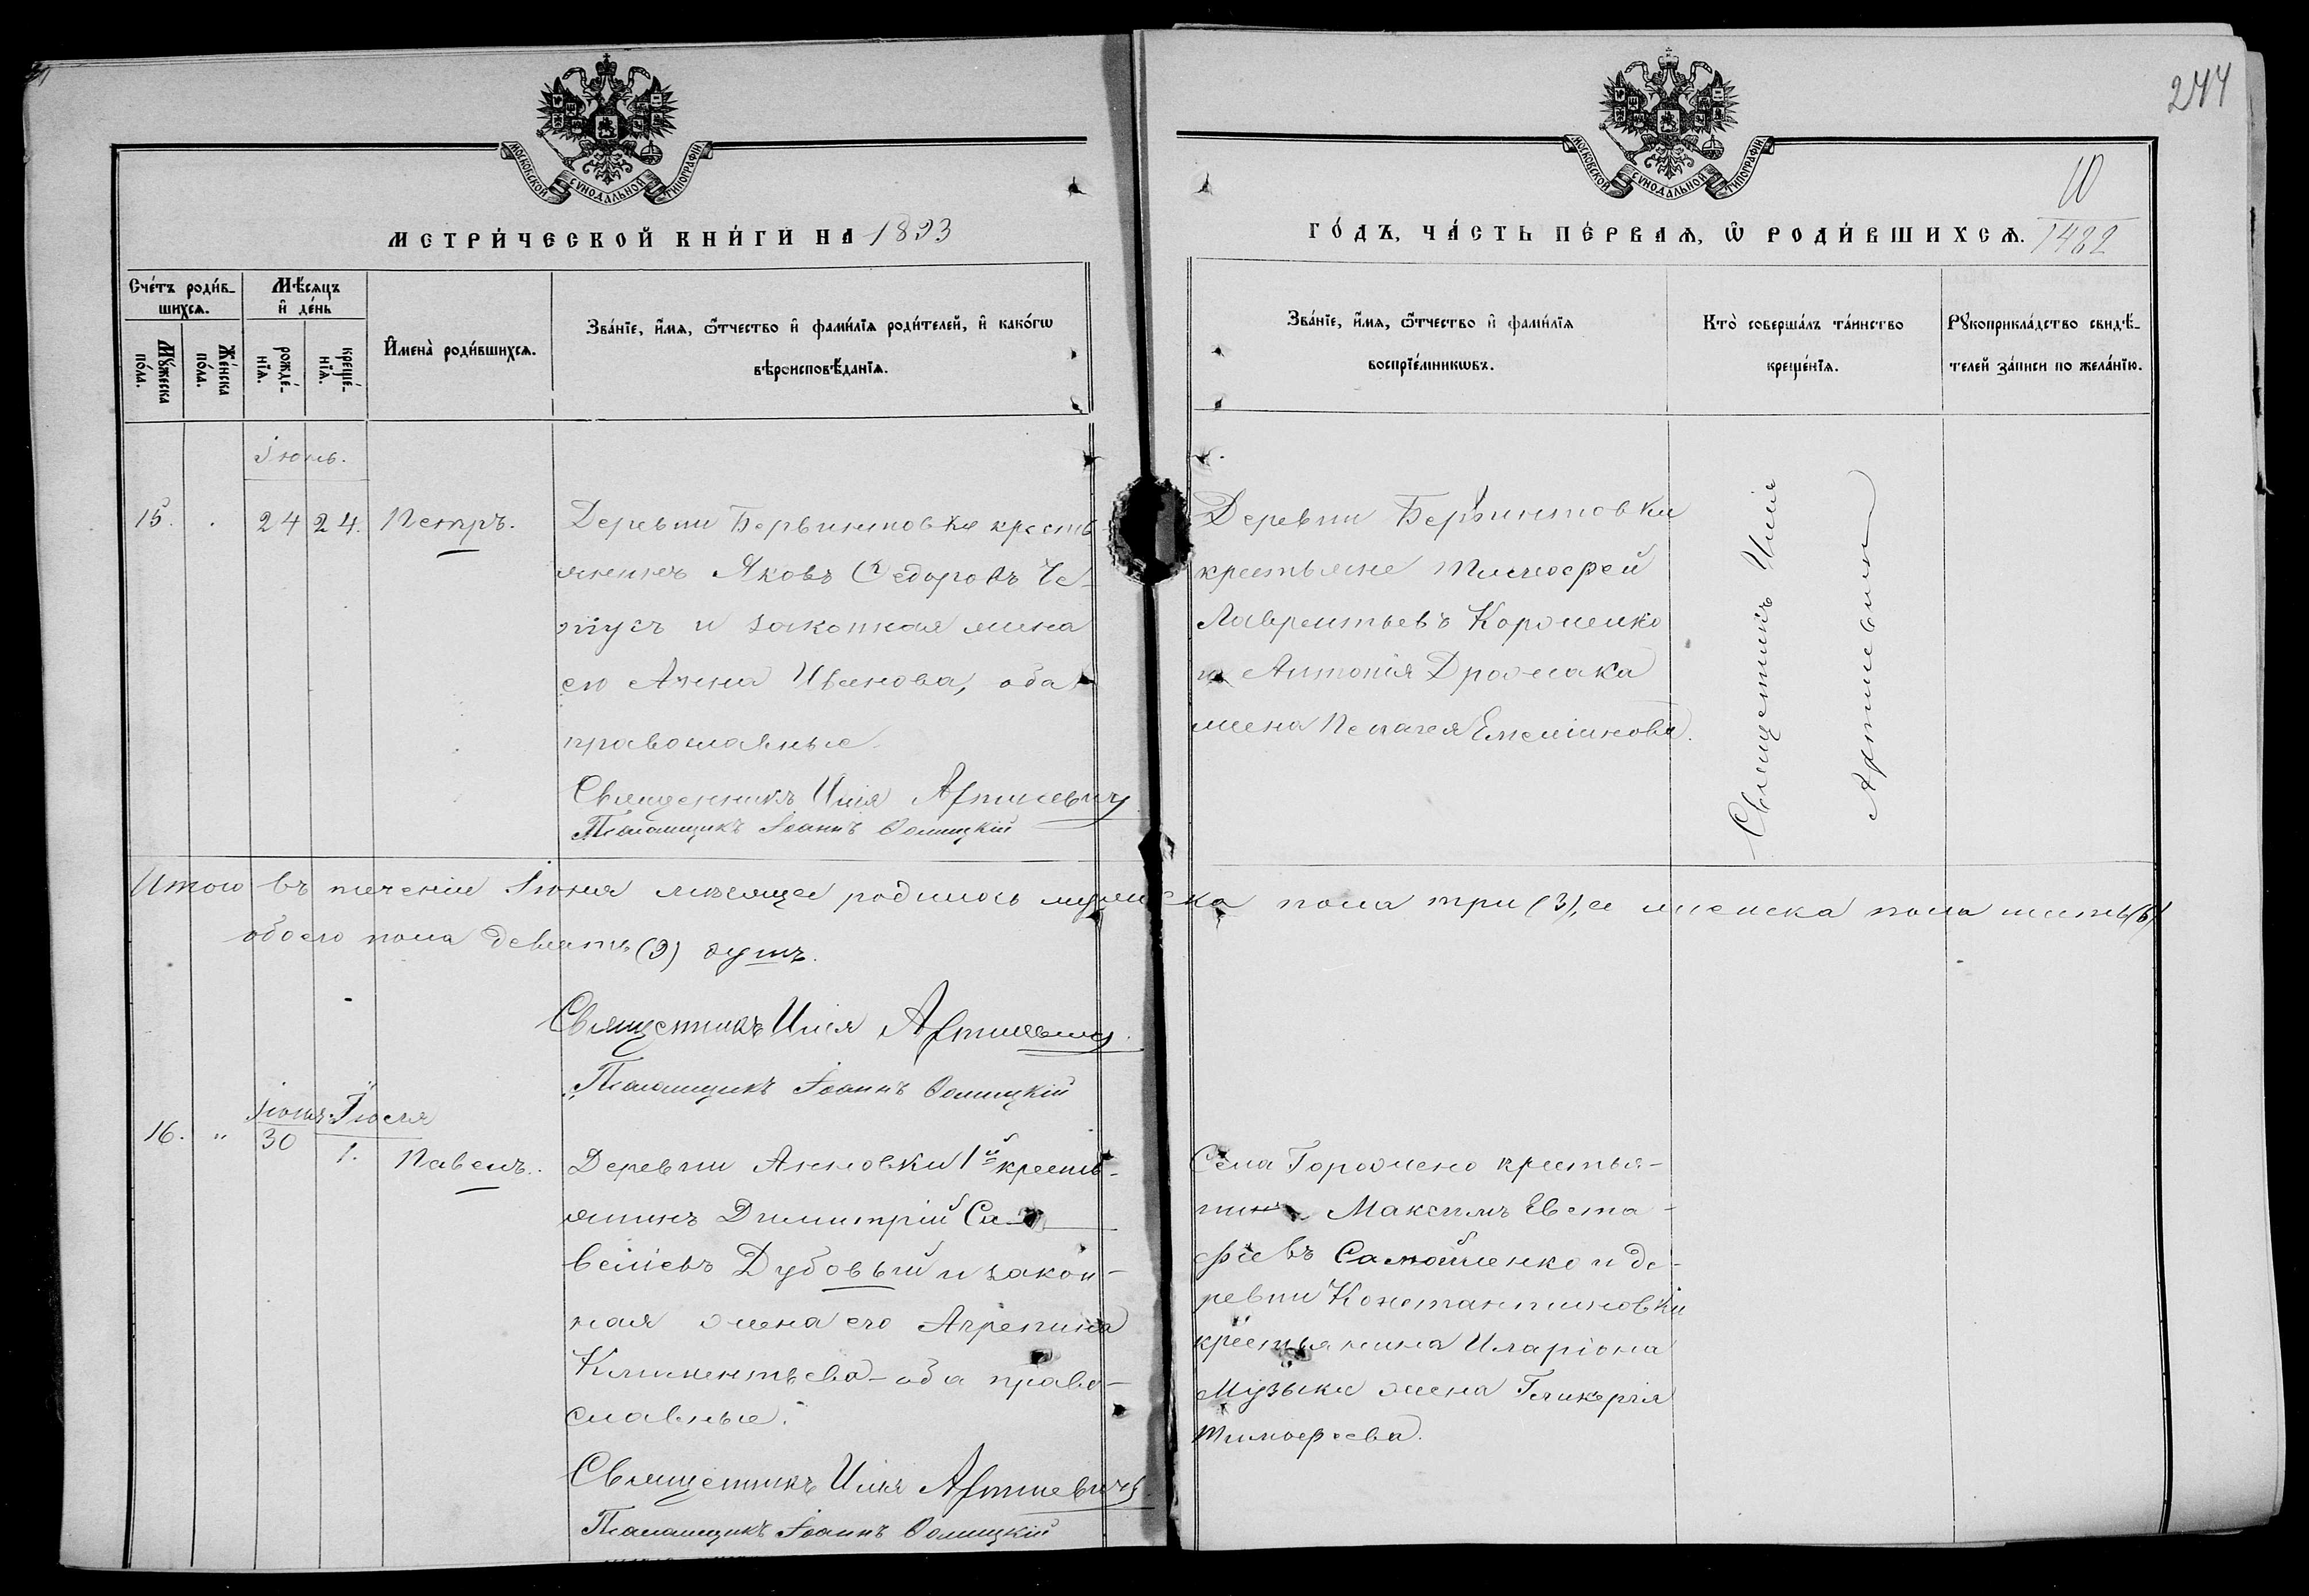 244
МОСКОВСКОЙ СѴНОДАЛЬНОЙ ТИПОГРАФІИ
МОСКОВСКОЙ СѴНОДАЛЬНОЙ ТИПОГРАФІИ
МЕТРИ́ЧЕСКОЙ КНИ́ГИ НА 1893
ГО́ДЪ, ЧА́СТЬ ПЕ́РВАѦ, Ѿ РОДИ́ВШИХСѦ.
10
1482
Сче́тъ роди́вшихсѧ.
Мꙋ́жеска по́ла.
Же́нска по́ла.
Мѣ́сѧцъ и҆ де́нь
рожде́нїѧ.
креще́нїѧ.
И҆мена̀ роди́вшихсѧ.
Зва́нїе, и҆́мѧ, ѻ҆́тчество и҆ фами́лїѧ роди́телей, и҆ како́гѡ
вѣроисповѣ́данїѧ.
Зва́нїе, и҆́мѧ, ѻ҆́тчество и҆ фами́лїѧ
воспрїе́мникѡвъ.
Кто̀ соверша́лъ та́инство
креще́нїѧ.
Рꙋкоприкла́дство свидѣ́-
телей за́писи по жела́нїю.
Іюнь.
15. . 24 24. Петръ.
Деревни Бервинтовки кресть-
янинъ Яковъ Ѳедоровъ Че-
пусъ и законная жена
его Анна Иванова, оба
православные.
Священникъ Илія Артишевичъ
Псаломщикъ Іоаннъ
Деревни Бервинтовки
крестьяне Тимоѳей
Лаврентьевъ Короченко
и Антонія Дрожака
жена Пелагея Емеліанова.
Священникъ Илія
Итого въ теченіи Іюня мѣсяца родилось мужеска пола три (3), а женска пола шесть (6)
обоего пола девять (9) душъ.
Священникъ Илія Артишевичъ.
Псаломщикъ Іоаннъ
Іюня Іюля
16. " 30 1. Павелъ.
Деревни Анновки 1й кресть-
янинъ Димитрій Са-
веліевъ Дубовый и закон-
ная жена его Агрепина
Климентьева - оба право-
славные.
Священникъ Илія Артишевичъ
Псаломщикъ Іоаннъ
Села Горожено крестья-
нинъ Максимъ Евста-
фіевъ Самойленко и де-
ревни Константиновки
крестьянина Иларіона
Музыки жена Гликерія
Тимоѳеева.